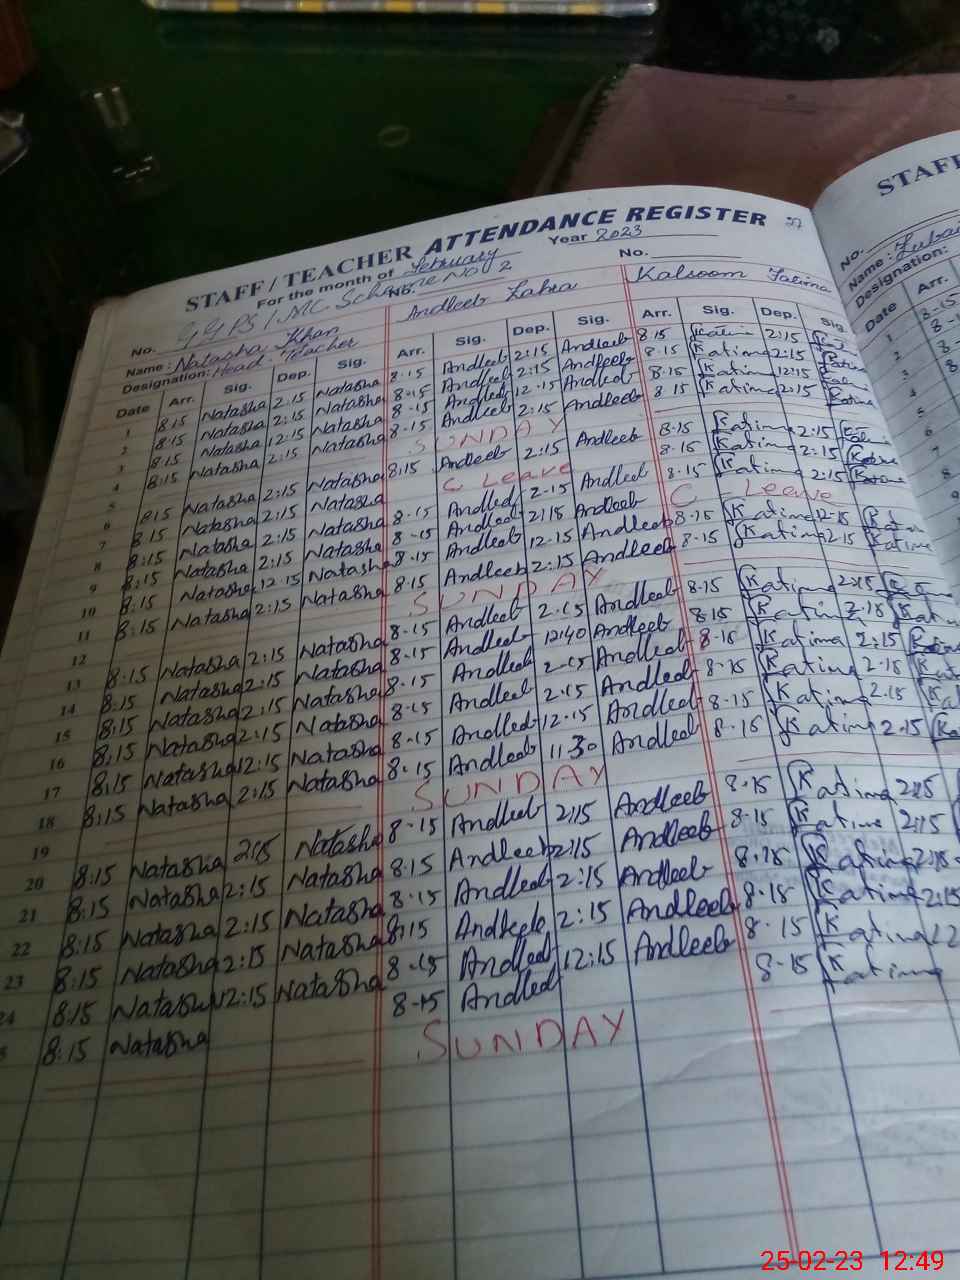 STAFF / TEACHER ATTENDANCE REGISTER 27
For the month of February Year 2023
GGPS / JMC Scheme No 2
No. No. No.
Name : Natasha Khan Andleeb Zahra Kalsoom Fatima
Designation: Head Teacher
Date Arr. Sig. Dep. Sig. Arr. Sig. Dep. Sig. Arr. Sig. Dep. Sig.
1 8:15 Natasha 2:15 Natasha 8:15 Andleeb 2:15 Andleeb 8:15 Katima 2:15
2 8:15 Natasha 2:15 Natasha 8-15 Andleeb 2:15 Andleeb 8:15 Katima 2:15 Katima
3 8:15 Natasha 12:15 Natasha 8-15 Andleeb 12-15 Andleeb 8:15 Katima 12:15
4 8:15 Natasha 2:15 Natasha 8-15 Andleeb 2:15 Andleeb 8:15 Katima 2:15 Katima
5 SUNDAY
6 8:15 Natasha 2:15 Natasha 8:15 Andleeb 2:15 Andleeb 8:15 Katima 2:15
7 8:15 Natasha 2:15 Natasha C Leave 8-15 Katima 2:15
8 8:15 Natasha 2:15 Natasha 8-15 Andleeb 2-15 Andleeb 8-15 Katima 2:15
9 8:15 Natasha 2:15 Natasha 8-15 Andleeb 2:15 Andleeb C - Leave
10 8:15 Natasha 12:15 Natasha 8-15 Andleeb 12:15 Andleeb 8-15 Katima 12-15
11 8:15 Natasha 2:15 Natasha 8:15 Andleeb 2:15 Andleeb 8-15 Katima 2:15 Katima
12 SUNDAY
13 8:15 Natasha 2:15 Natasha 8-15 Andleeb 2-15 Andleeb 8-15 Katima 2:15
14 8:15 Natasha 2:15 Natasha 8-15 Andleeb 12:40 Andleeb 8:15 Katima 2-15
15 8:15 Natasha 2:15 Natasha 8-15 Andleeb 2-15 Andleeb 8-15 Katima 2:15
16 8:15 Natasha 2:15 Natasha 8-15 Andleeb 2-15 Andleeb 8-15 Katima 2-15
17 8:15 Natasha 12:15 Natasha 8-15 Andleeb 12-15 Andleeb 8-15 Katima 2:15
18 8:15 Natasha 2:15 Natasha 8-15 Andleeb 11:30 Andleeb 8-15 Katima 2-15
19 SUNDAY
20 8:15 Natasha 2:15 Natasha 8-15 Andleeb 2:15 Andleeb 8-15 Katima 2:15
21 8:15 Natasha 2:15 Natasha 8:15 Andleeb 2:15 Andleeb 8-15 Katima 2:15
22 8:15 Natasha 2:15 Natasha 8-15 Andleeb 2:15 Andleeb 8-15 Katima 2:15
23 8:15 Natasha 2:15 Natasha 8:15 Andleeb 2:15 Andleeb 8-15 Katima 2:15
24 8:15 Natasha 12:15 Natasha 8-15 Andleeb 12:15 Andleeb 8-15 Katima 12
8:15 Natasha 8-15 Andleeb 8-15 Katima
SUNDAY
STAFF
No.
Name :
Designation:
Date Arr.
1 8-15
2
3
4
5
6
7
8
9
25-02-23 12:49